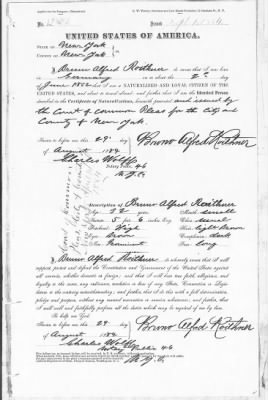 UNITED STATES OF AMERICA.
STATE OF New York
COUNTY OF New York
I Bruno Alfred Roithner do swear that I was born
in Germany on or about the 2nd day
of June that I am a NATURALIZED AND LOYAL CITIZEN OF THE
UNITED STATES, and about to travel abroad; and further, that I am the Identical Person
described in the Certificate of Naturalization, herewith presented and issued by
the Court of Common Pleas for the City and
County of New York.
Sworn to before me this 29
of August 1884
Bruno Alfred Roithner
Charles Wolff
Notary Public
N.Y.C.
Description of Bruno Alfred Roithner
Age: 32 years Mouth: small
Stature: 5 feet 6 inches Eng. Chin: small
Forehead: High Hair: Light Brown
Eyes: Brown Complexion: dark
Nose: Prominent Face: Long
I Bruno Alfred Roithner do solemnly swear that I will
support, protect and defend the Constitution and Government of the United States against
all enemies, whether domestic or foreign; and that I will bear true faith, allegiance, and
loyalty to the same, any ordinance, resolution or law of any State, Convention or Legis-
lature to the contrary notwithstanding; and further, that I do this with a full determination,
pledge and purpose, without any mental reservation or evasion whatsoever; and further, that
I will well and faithfully perform all the duties which may be required of me by law.
So help me God.
Sworn to before me this 29 day
of August 1884
Bruno Alfred Roithner
Charles Wolff
Notary Public
N.Y.C.